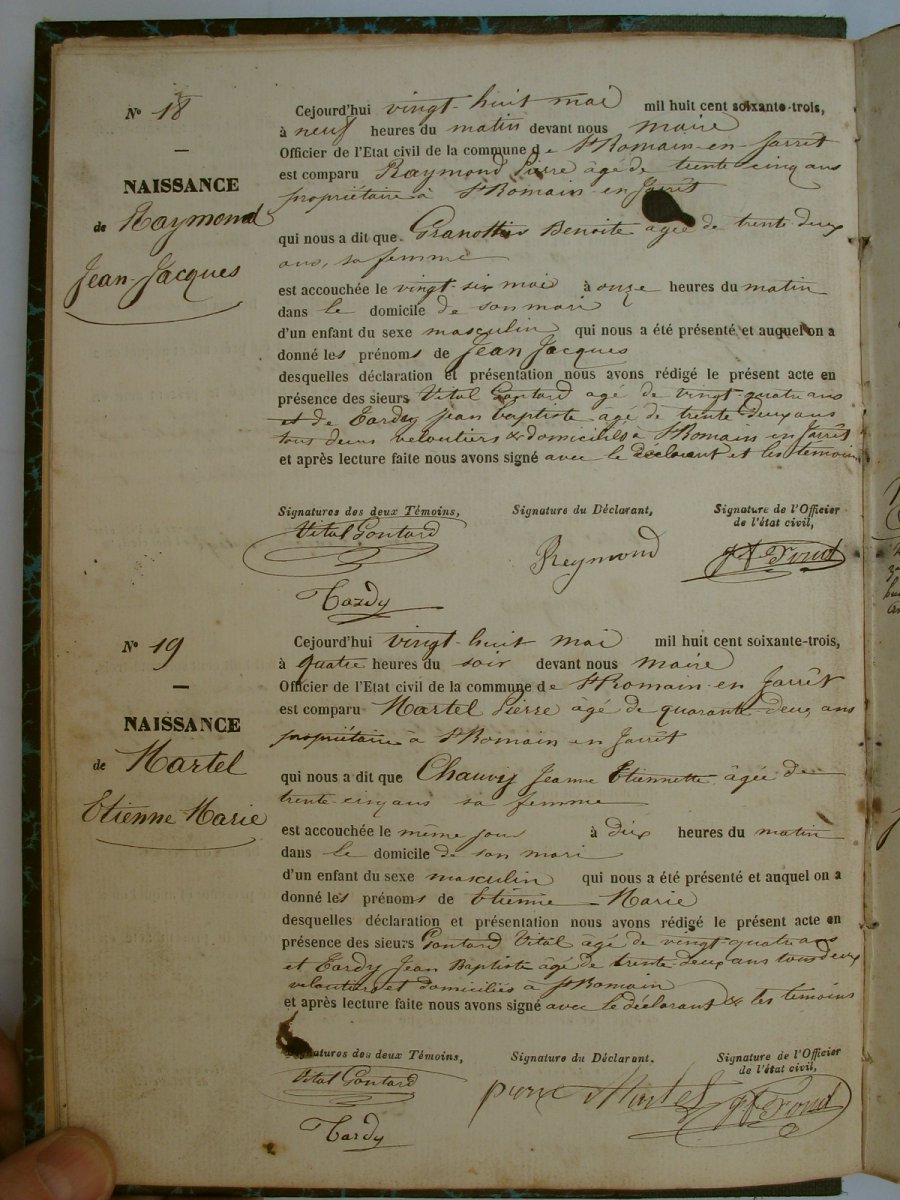 N° 18
—
NAISSANCE
de Raymond
Jean-Jacques
Cejourd'hui vingt-huit mai mil huit cent soixante-trois,
à neuf heures du matin devant nous maire
Officier de l'Etat civil de la commune de St Romain-en-Jarrêt
est comparu Raymond Pierre âgé de trente cinq ans
propriétaire à St Romain-en-Jarrêt
qui nous a dit que Benoite agée de trente-deux
ans, sa femme
est accouchée le vingt-six mai à onze heures du matin
dans le domicile de son mari
d'un enfant du sexe masculin qui nous a été présenté et auquel on a
donné les prénoms de Jean Jacques
desquelles déclaration et présentation nous avons rédigé le présent acte en
présence des sieurs Vital Goutard agé de vingt-quatre ans
et de Tardy Jean baptiste âgé de trente deux ans
tous deux veloutiers & domiciliés à St Romain en Jarrêt
et après lecture faite nous avons signé avec le déclarant et les témoins
Signatures des deux Témoins, Signature du Déclarant, Signature de l'Officier
de l'état civil,
Vital Goutard Reymond
Tardy
N° 19
—
NAISSANCE
de Martel
Etienne Marie
Cejourd'hui vingt-huit mai mil huit cent soixante-trois,
à quatre heures du soir devant nous maire
Officier de l'Etat civil de la commune de St Romain-en Jarrêt
est comparu Martel Pierre agé de quarante-deux ans
propriétaire à St Romain en Jarrêt
qui nous a dit que Chauvy Jeanne Etiennette âgée de
trente-cinq ans sa femme
est accouchée le même jour à dix heures du matin
dans le domicile de son mari
d'un enfant du sexe masculin qui nous a été présenté et auquel on a
donné les prénoms de Etienne-Marie
desquelles déclaration et présentation nous avons rédigé le présent acte en
présence des sieurs Goutard Vital agé de vingt-quatre ans
et Tardy Jean Baptiste âgé de trente deux ans tous deux
veloutiers et domiciliés à St Romain
et après lecture faite nous avons signé avec le déclarant & les témoins
Signatures des deux Témoins, Signature du Déclarant. Signature de l'Officier
de l'état civil,
Vital Goutard pierre Martel
Tardy